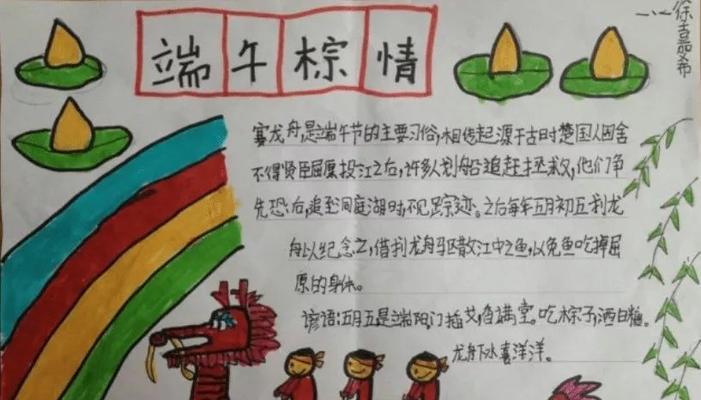 端午棕情
徐嘉希
赛龙舟,是端午节的主要习俗,相传起源于古时楚国人因舍
不得贤臣屈原投江之后,许多人划船追赶拯救,他们争
先恐后,追至洞庭湖时不见踪迹。之后每年五月初五划龙
舟以纪念之,借划龙舟驱散江中之鱼,以免鱼吃掉屈
原的身体。
谚语:五月五是端阳门插艾香满堂。吃棕子洒白糖。
龙舟下水喜洋洋。